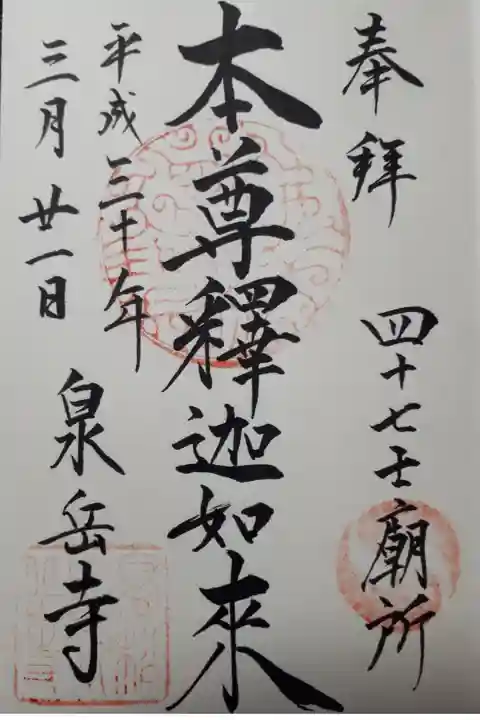 奉拜 四十七士廟所
本尊釋迦如來
平成三十年
三月廿一日
泉岳寺